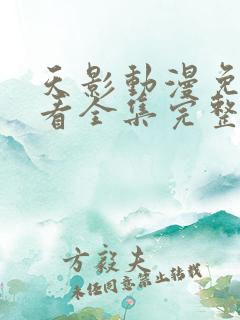 天影動漫免
看全集完整
方毅夫
未经同意禁止转载